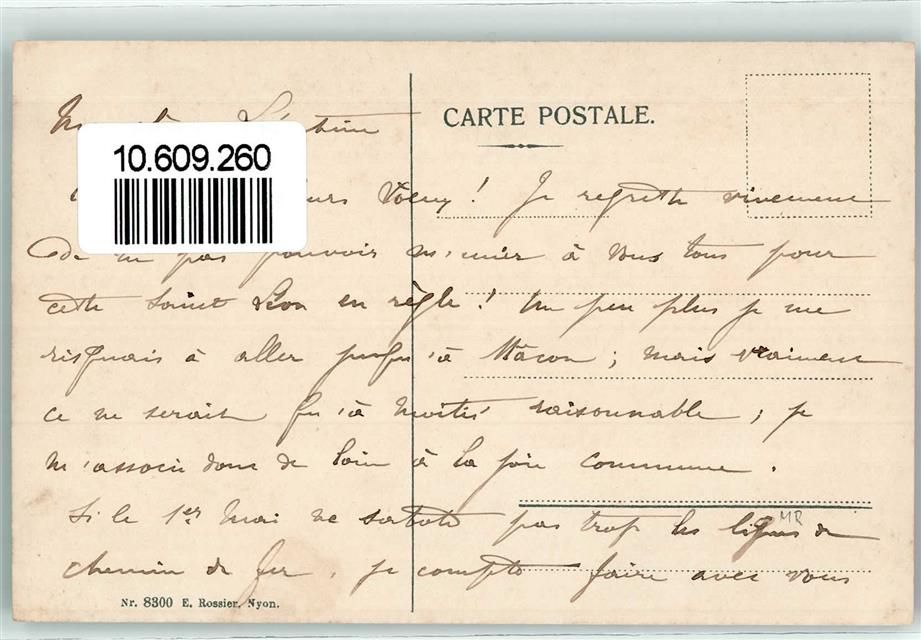 CARTE POSTALE.
10.609.260
! Je regrette vivement
de ne pas pouvoir m'unir à vous tous pour
cette Saint Léon en règle ! Un peu plus je me
risquais à aller jusqu'à Mâcon ; mais vraiment
ce ne serait qu'à moitié raisonnable ; je
m'associe donc de loin à la joie commune .
Si le 1er Mai ne sabote pas trop les lignes de
chemin de fer , je compte faire avec vous
MR
Nr. 8300 E. Rossier, Nyon.